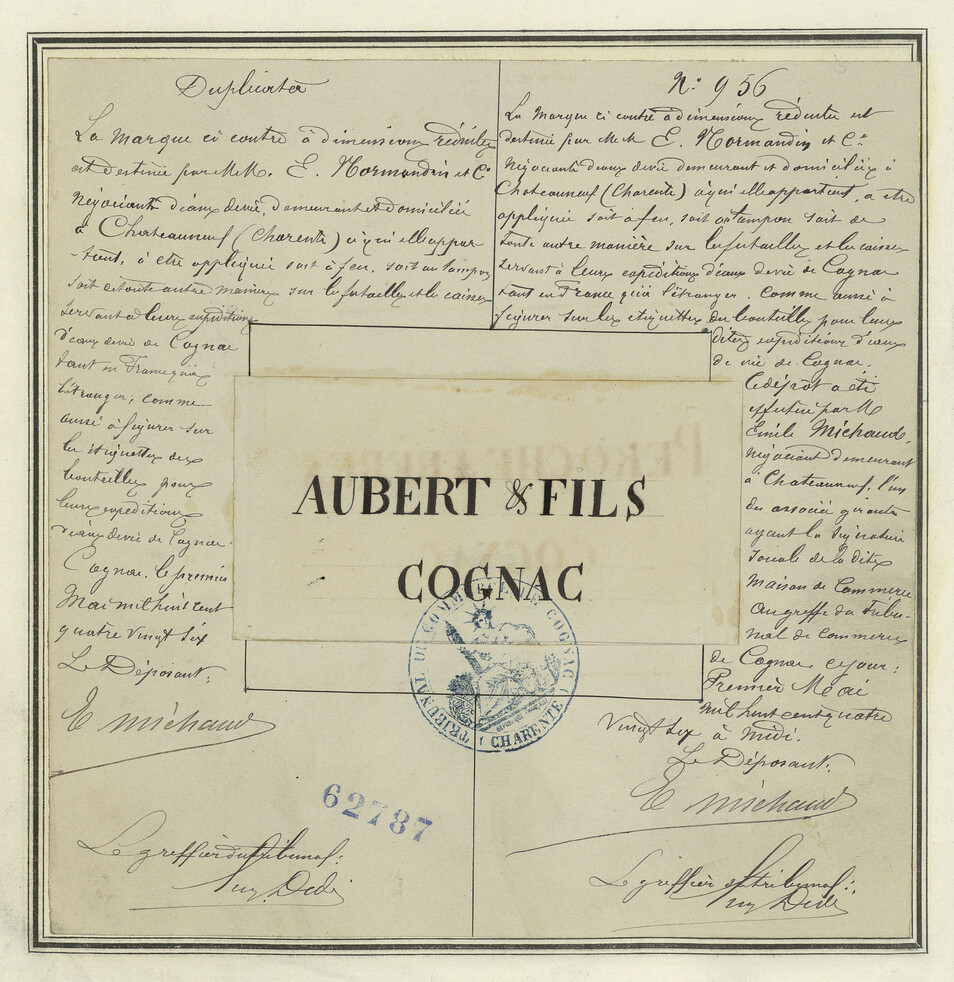 Duplicata
La marque ci contre à dimensions réduites
est destinée par MM. E. Normandin et Cie
Négociants d'eaux de vie, demeurant et domiciliés
à Chateauneuf (Charente) à qui elle appar
-tient, à être appliquée soit à feu, soit au tampon
soit de toute autre manière sur les futailles et les caisses
servant à leurs expéditions
d'eaux de vie de Cognac
tant en France qu'à
l'étranger, comme
aussi à figurer sur
les étiquettes des
bouteilles pour
leurs expéditions
d'eaux de vie de Cognac
Cognac, le premier
Mai mil huit cent
quatre vingt six
Le Déposant:
E Michaud
Le greffier du tribunal:
N° 956
La marque ci contre à dimensions réduites est
destinée par MM E. Normandin et Cie
Négociants d'eaux de vie demeurant et domiciliés à
Chateauneuf (Charente) à qui elle appartient, a être
appliquée soit à feu, soit au tampon soit de
toute autre manière sur les futailles et les caisses
servant à leurs expéditions d'eaux de vie de Cognac
tant en France qu'à l'étranger. Comme aussi à
figurer sur les étiquettes des bouteilles pour leurs
dites expéditions d'eaux
de vie de Cognac.
Ce dépôt a été
effectué par M
Emile Michaud,
Négociant demeurant
à Chateauneuf, l'un
des associés gérants
ayant la signature
sociale de la dite
Maison de Commerce
au greffe du Tribu-
nal de Commerce
de Cognac ce jour:
Premier Mai
mil huit cent quatre
Vingt six à midi.
Le Déposant:
E Michaud
Le greffier du tribunal:
AUBERT & FILS
COGNAC
PEROCHE FRERES
COGNAC
TRIBUNAL DE COMMERCE DE COGNAC
(CHARENTE)
RÉPUBLIQUE FRANÇAISE
62787